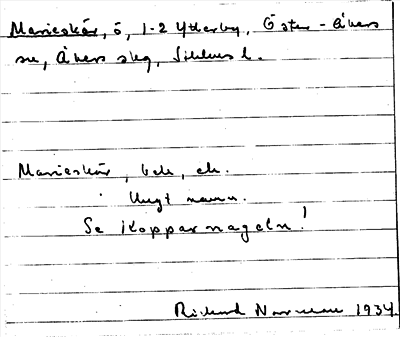 Marieskär, ö, 1-2 Ytterby, Öster-Åkers
sn, Åkers slg, Sthlms l.
Marieskär, beb, ek.
Ungt namn.
Se Kopparnageln!
Rickard Norrman 1934.